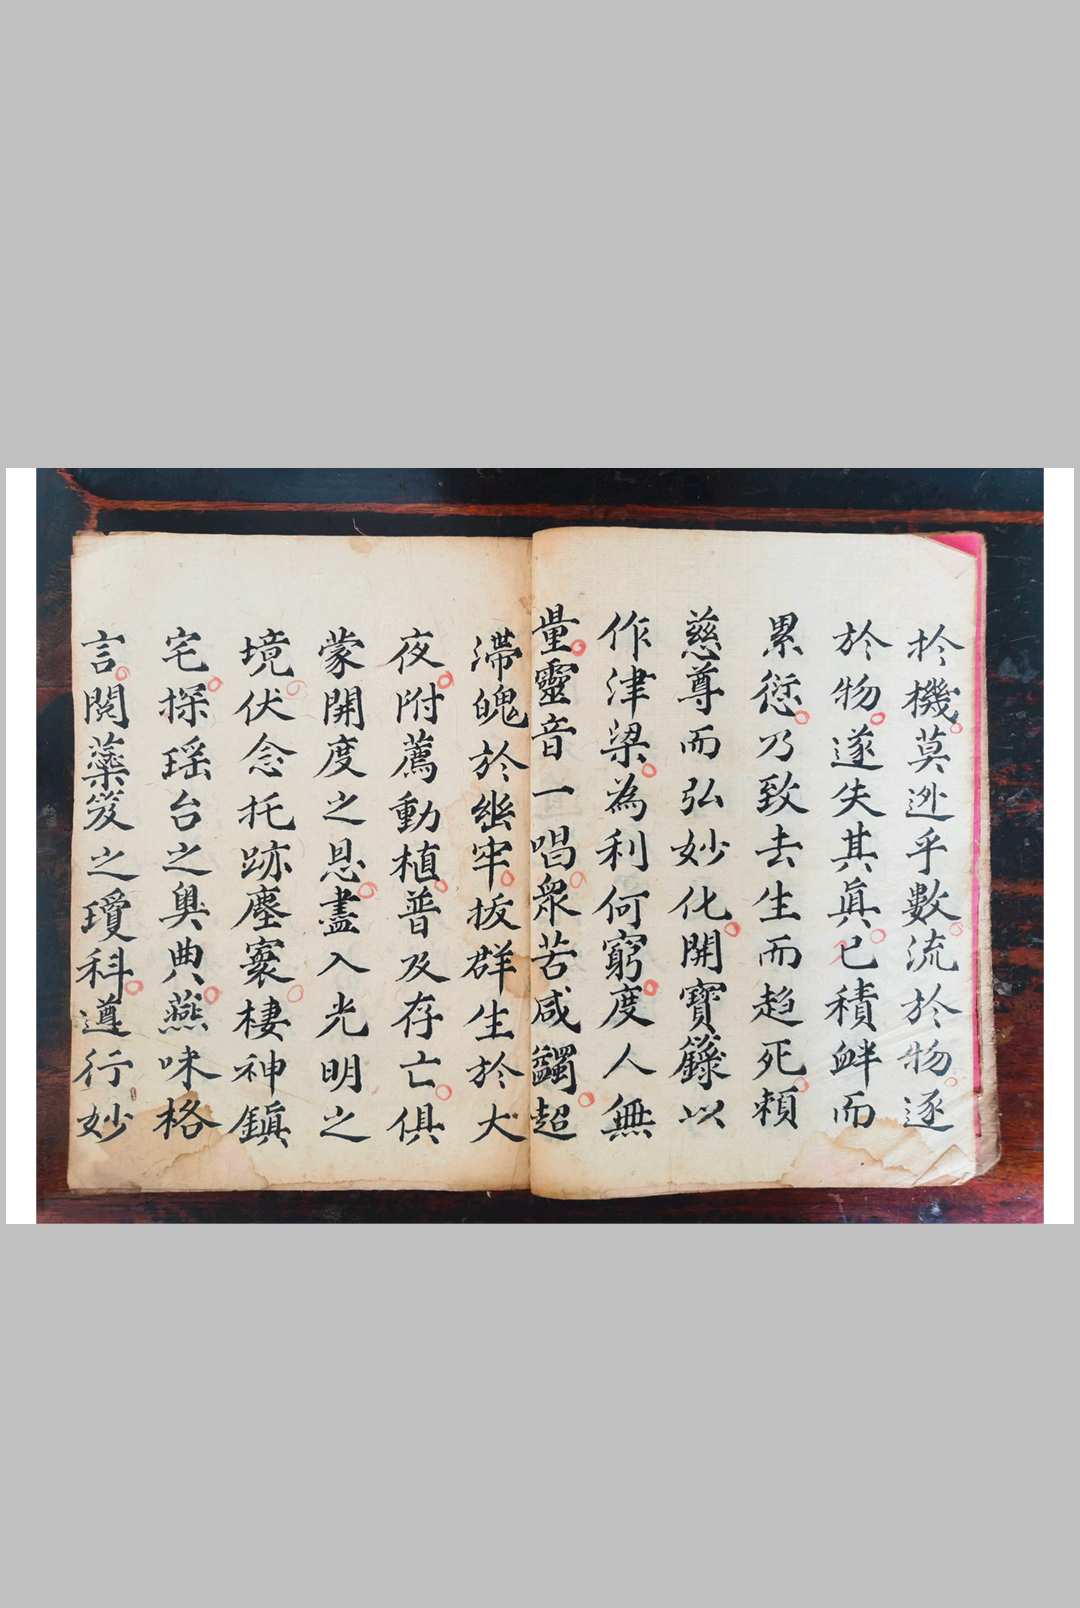 扵機。莫迯乎數。流於物。逐
於物。遂失其眞。已積衅而
累愆。乃致去生而趋死。頼
慈尊而弘妙化。開寶籙以
作津梁。為利何窮。度人無
量。靈音一唱。衆苦咸蠲。超
滯魄於幽牢。拔群生於大
夜。附薦動植。普及存亡。俱
蒙開度之恩。盡入光明之
境。伏念托跡塵寰。棲神鎮
宅。探瑶台之奥典。燕味格
言。閱蘂笈之瓊科。遵行妙